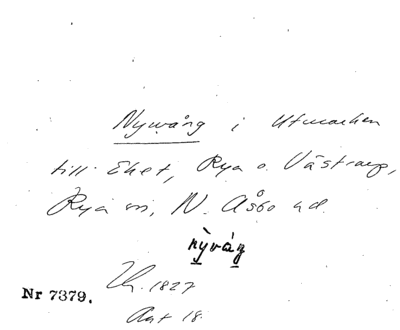 Nyvång i Utmarken
till Ehet, Rya o. Västrarp,
Rya sn, N. Åsbo hd.
nỳvåg
Lh. 1827
Nr 7379.
Akt 18.